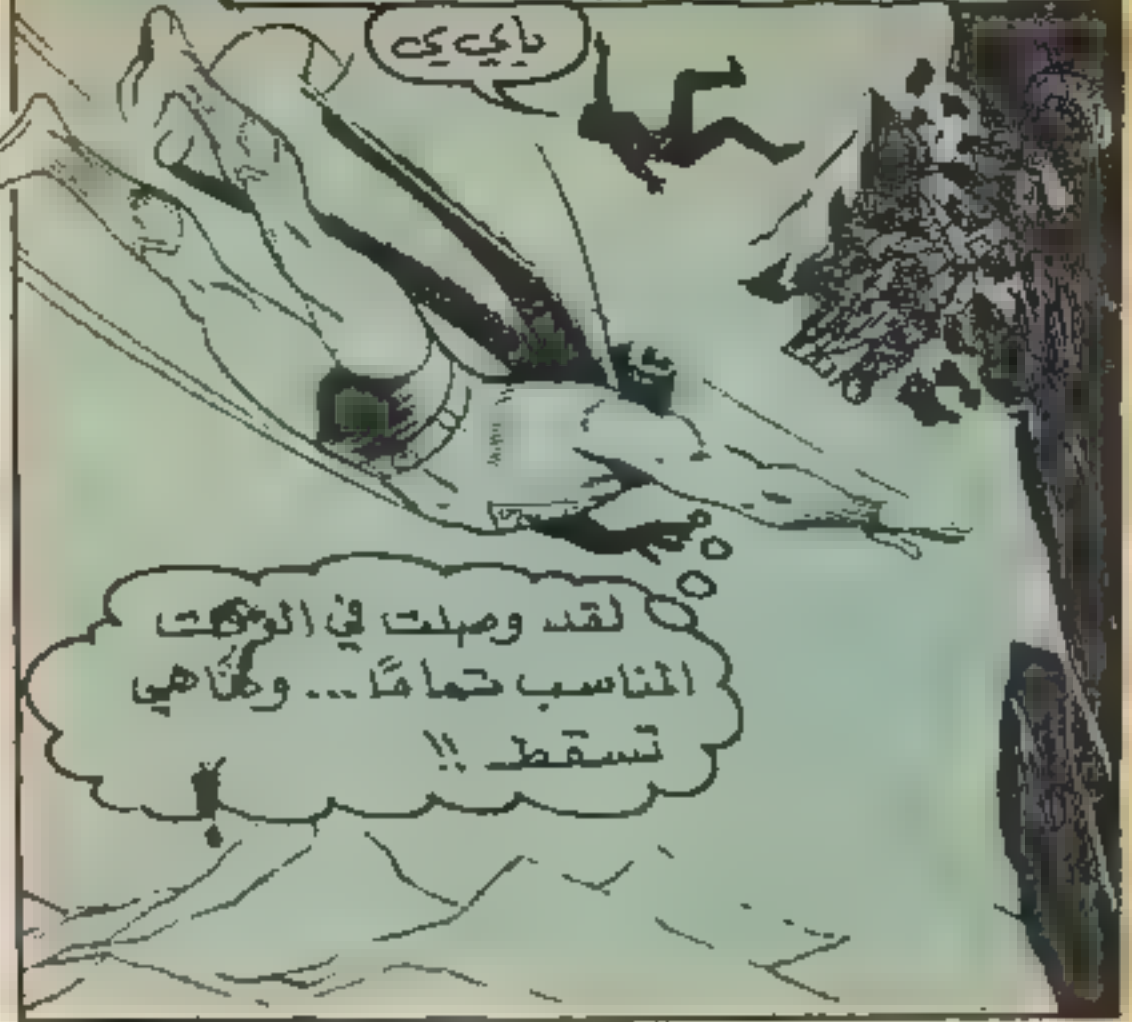 ياي ي
لقد وصلت في الوقت
المناسب تمامًا... وها هي
تسقط !!